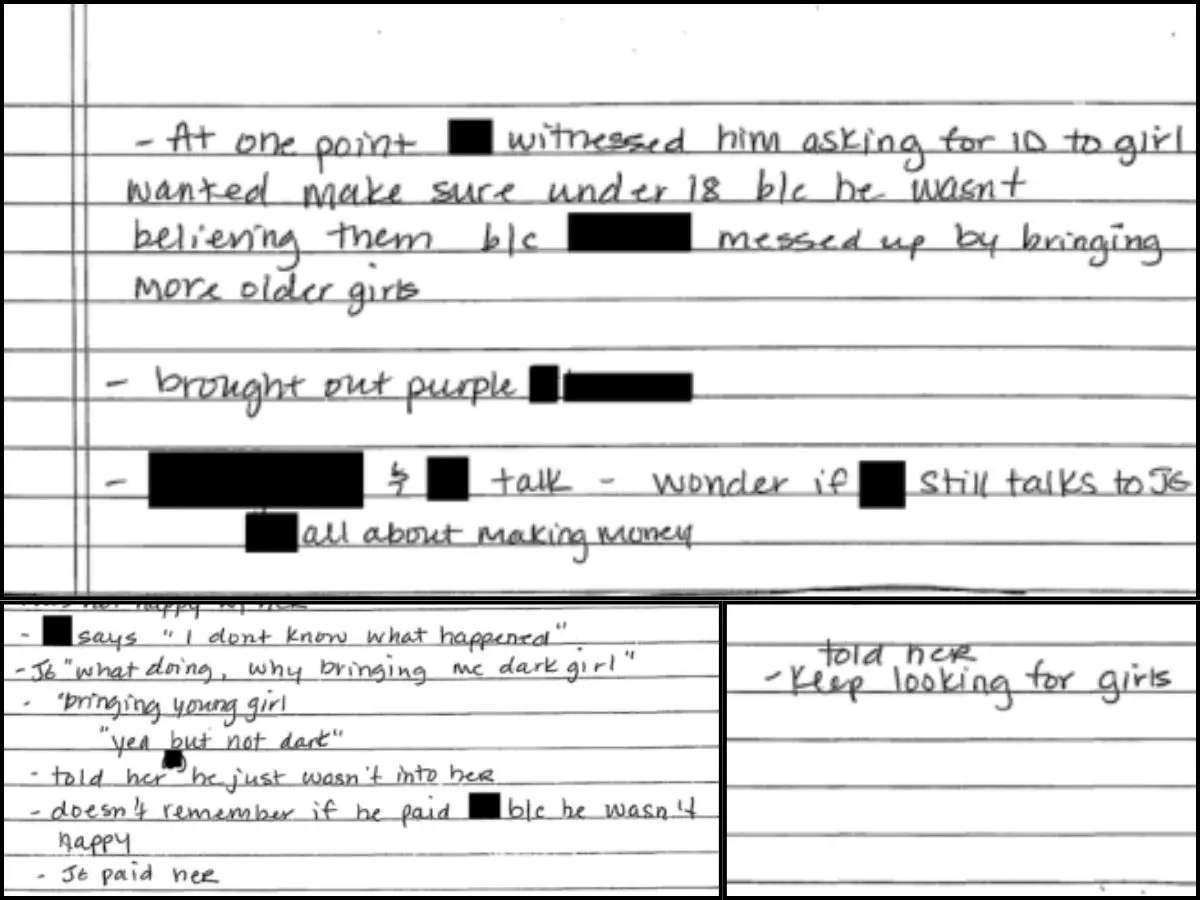 - At one point witnessed him asking for ID to girl
wanted make sure under 18 b/c he wasnt
believing them b/c messed up by bringing
more older girls
- brought out purple
- & talk - wonder if still talks to JE
all about making money
happy w/ her
- says "I dont know what happened"
- JE "what doing, why bringing me dark girl"
- "bringing young girl
"yea but not dark"
- told her he just wasn't into her
- doesn't remember if he paid b/c he wasn't
happy
- JE paid her
told her
- Keep looking for girls